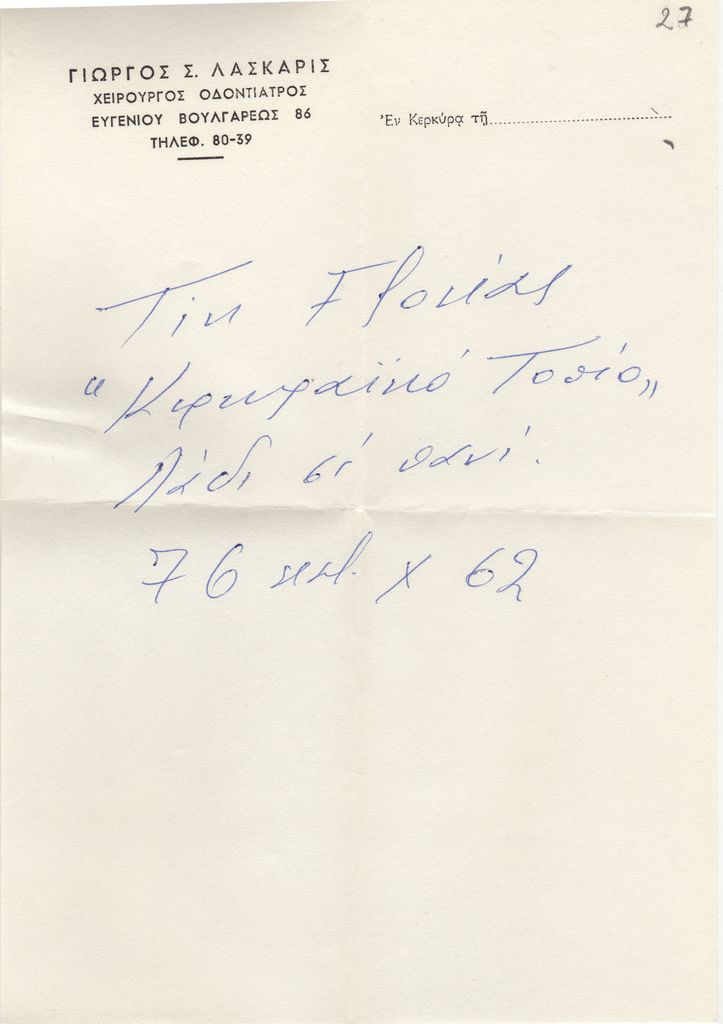 27
ΓΙΩΡΓΟΣ Σ. ΛΑΣΚΑΡΙΣ
ΧΕΙΡΟΥΡΓΟΣ ΟΔΟΝΤΙΑΤΡΟΣ
ΕΥΓΕΝΙΟΥ ΒΟΥΛΓΑΡΕΩΣ 86
ΤΗΛΕΦ. 80-39
Ἐν Κερκύρᾳ τῇ
"Κερκυραϊκό Τοπίο"
Λάδι σέ πανί.
76 x 62